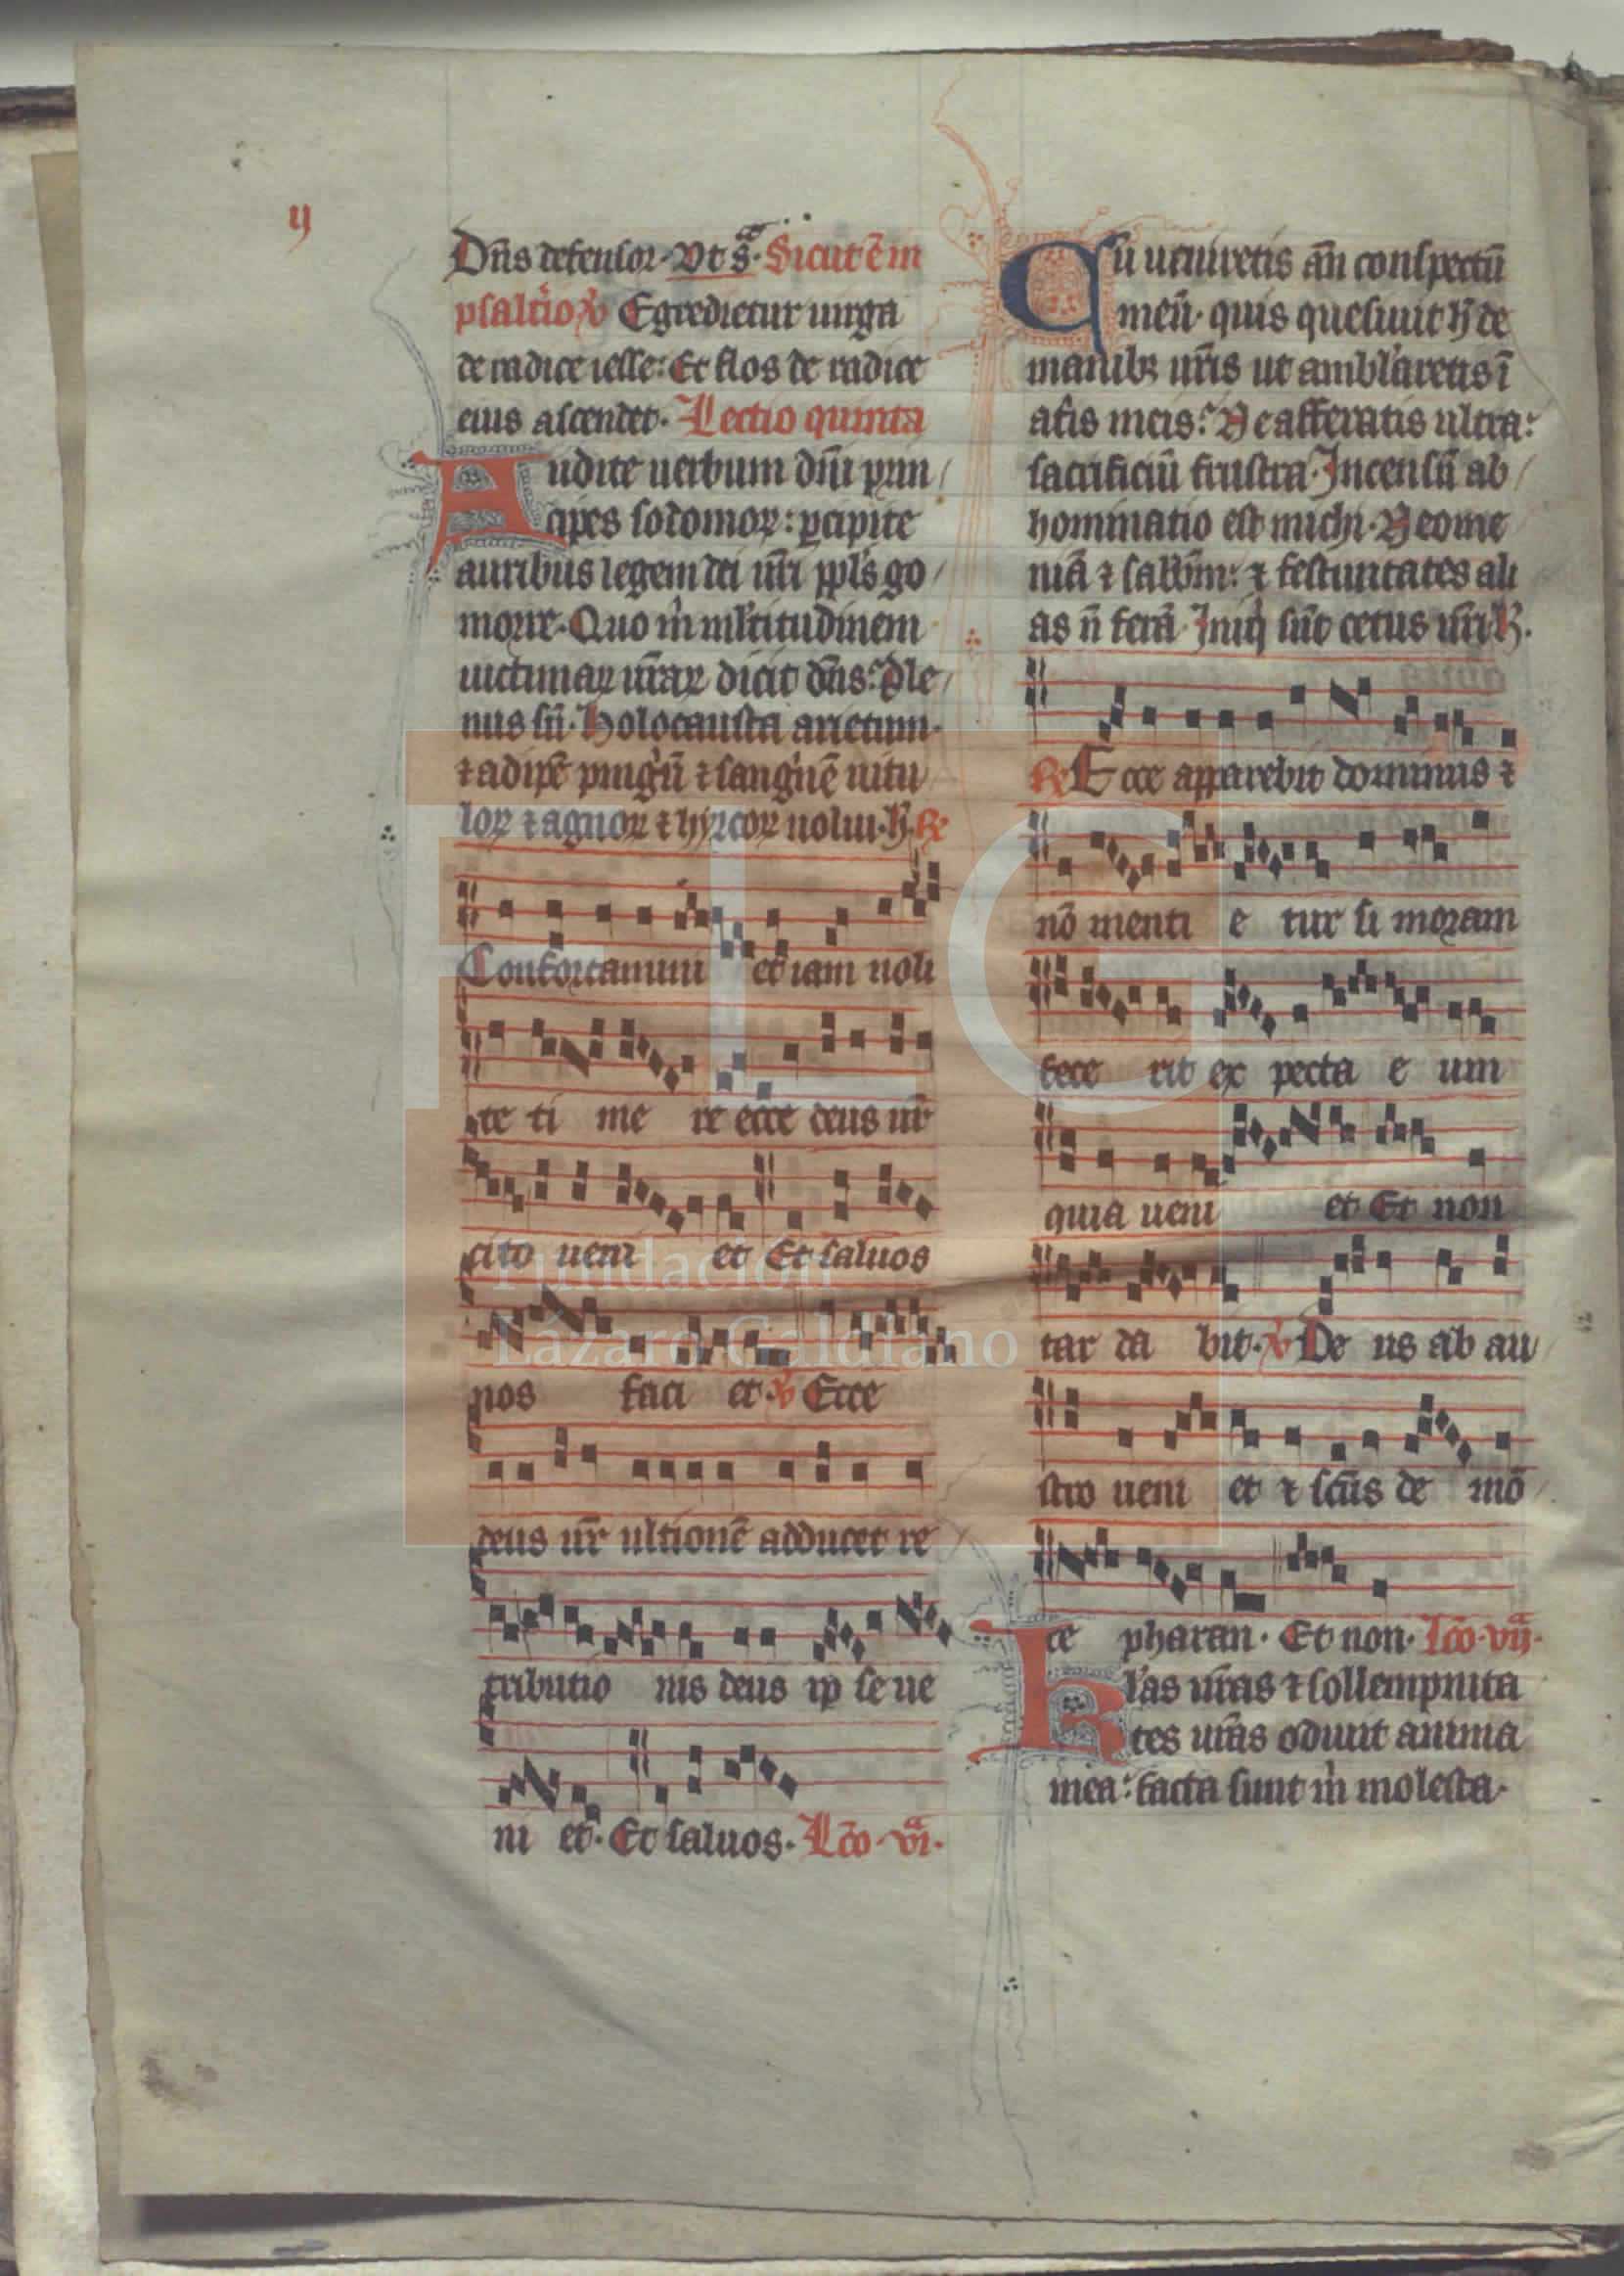 ij
Dn̄s defensor. Vt s̄ᵃ. Sicut ē in
psaltio ℣ Egredietur uirga
de radice iesse: Et flos de radice
eius ascendet. Lectio quinta
Audite uerbum dn̄i prin
cipes sodomoꝝ: ꝑcipite
auribus legem dei nr̄i ppl's go
morre. Quo m̄ ml'titudinem
uictimaꝝ ur̄aꝝ dicit dn̄s: Ple
nus sū. Holocausta arietum.
⁊ adipē pinguū ⁊ sanguinē uitu
loꝝ ⁊ agnoꝝ ⁊ hyrcoꝝ nolui. h̄. ℟
Confortamini et iam noli
te ti me re ecce deus nr̄
cito ueni et Et saluos
nos faci et. ℣ Ecce
deus nr̄ ultionē adducet re
tributio nis deus ip se ue
ni et. Et saluos. Lc̄o. vi.ᵃ
Cū ueniretis an̄ conspectū
meū. quis quesiuit h̄ de
manibꝫ ur̄is ut ambl'aretis ī
atīs meis: Ne afferatis ultra:
sacrificiū frustra. Incensū ab
hominatio est michi. Neome
niā ⁊ sabb̄m: ⁊ festiuitates ali
as n̄ ferā. Iniq̄ sūt cetus ur̄i. h̄.
℟ Ecce apparebit dominus ⁊
nō menti e tur si moram
fece rit ex pecta e um
quia ueni et Et non
tar da bit. ℣ De us ab au
stro ueni et ⁊ scūs de mō
te pharan. Et non. Lc̄o. vii.ᵃ
Kl'as ur̄as ⁊ sollempnita
tes ur̄as odiuit anima
mea: facta sunt m̄ molesta.
FLG
Fundación
Lázaro Galdiano